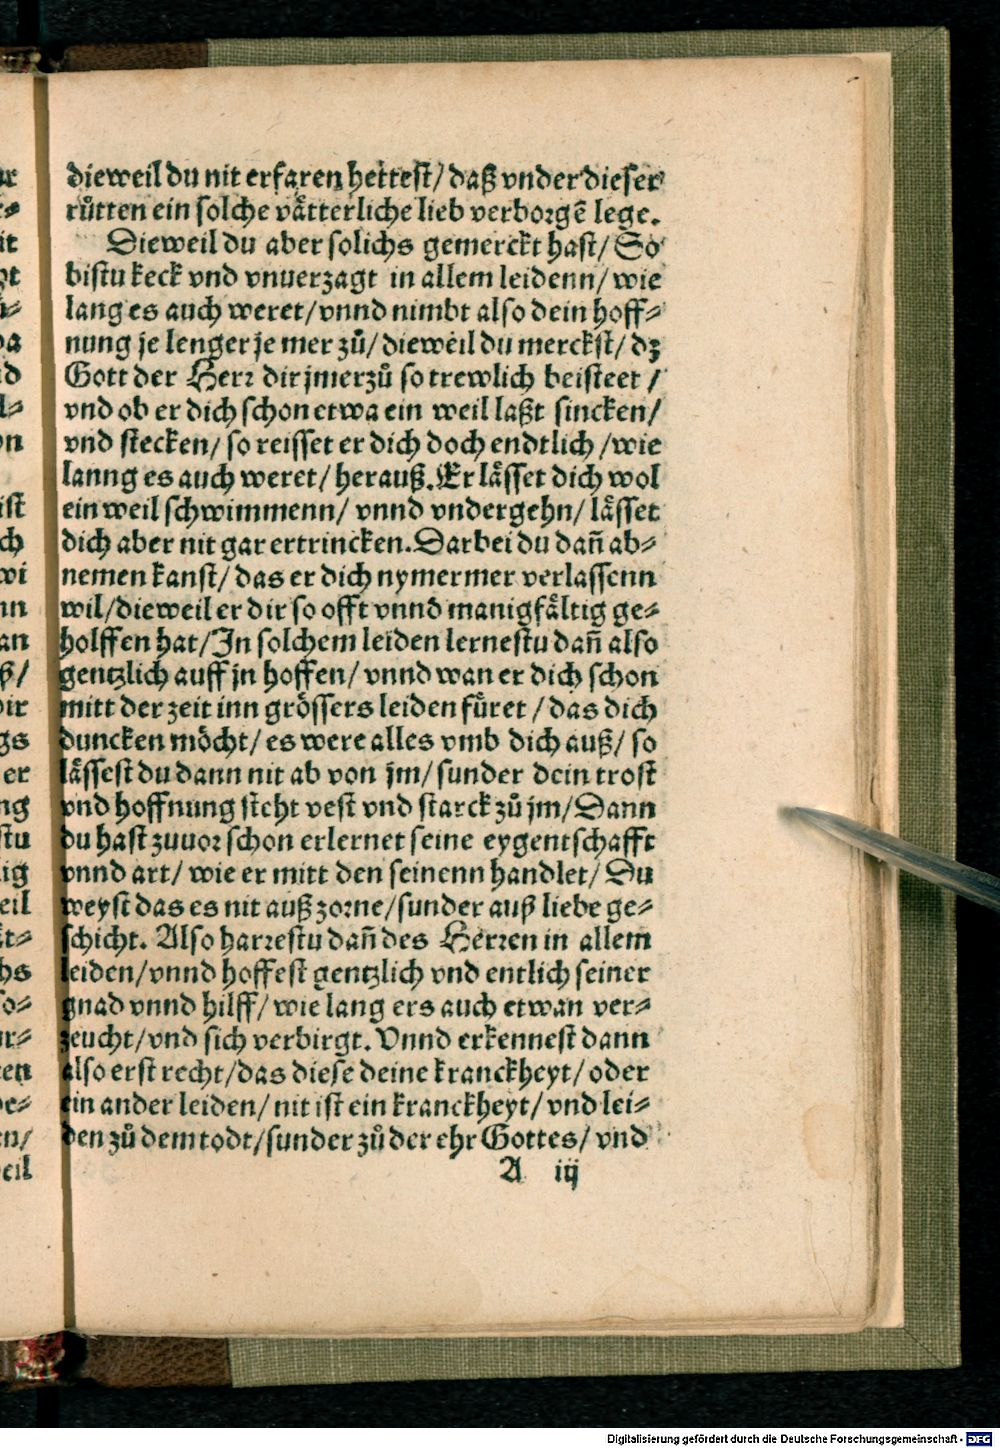 dieweil du nit erfaren hettest/ daß vnder dieser
růtten ein solche vätterliche lieb verborgē lege.
Dieweil du aber solichs gemerckt hast/ So
bistu keck vnd vnuerzagt in allem leidenn/ wie
lang es auch weret/ vnnd nimbt also dein hoff⸗
nung je lenger je mer zů/ dieweil du merckst/ dz
Gott der Herr dir jmerzů so trewlich beisteet /
vnd ob er dich schon etwa ein weil laßt sincken/
vnd stecken/ so reisset er dich doch endtlich /wie
lanng es auch weret/ herauß. Er lässet dich wol
ein weil schwimmenn/ vnnd vndergehn/ lässet
dich aber nit gar ertrincken. Darbei du dañ ab⸗
nemen kanst/ das er dich nymermer verlassenn
wil/ dieweil er dir so offt vnnd manigfältig ge⸗
holffen hat/ In solchem leiden lernestu dañ also
gentzlich auff jn hoffen/ vnnd wan er dich schon
mitt der zeit inn grössers leiden füret / das dich
duncken möcht/ es were alles vmb dich auß/ so
lässest du dann nit ab von jm/ sunder dein trost
vnd hoffnung steht vest vnd starck zů jm/ Dann
du hast zuuor schon erlernet seine eygentschafft
vnnd art/ wie er mitt den seinenn handlet/ Du
weyst das es nit auß zorne/ sunder auß liebe ge⸗
schicht. Also harrestu dañ des Herren in allem
leiden/ vnnd hoffest gentzlich vnd entlich seiner
gnad vnnd hilff/ wie lang ers auch etwan ver⸗
zeucht/ vnd sich verbirgt. Vnnd erkennest dann
also erst recht/ das diese deine kranckheyt/ oder
ein ander leiden/ nit ist ein kranckheyt/ vnd lei⸗
den zů dem todt/ sunder zů der ehr Gottes/ vnd
A iij
Digitalisierung gefördert durch die Deutsche Forschungsgemeinschaft - DFG